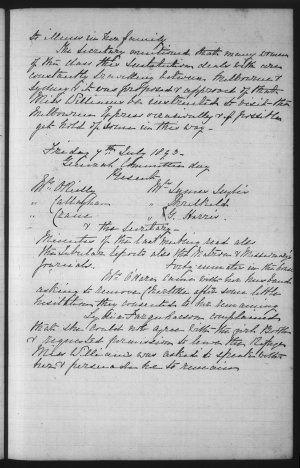 to Nurse in her family
The Secretary mentioned that many women
of the class this Institution deals with were
constantly travelling between Melbourne &
Sydney & it was proposed & approved of that
Miss Williams be instructed to visit the
Melbourne Express occasionally & if possible
get hold of some in this way.
Friday 7th July 1893.
General Committee day
Present
Mrs O'Reilly Mrs Sumner Taylor
" Callaghan " Threlkeld
" Cranе " G. Harris
& the Secretary
Minutes of the last meeting read also
the tabular reports also the Matron & Missionary
journals. Forty inmates in the house
Mrs O'Hara came with her husband
asking to remove after some little
hesitation they consented to her remaining
Lydia Farquharson complained
that she could not agree with the girl
& requested permission to leave the Refuge
Miss Williams was asked to speak with
her & persuade her to remain